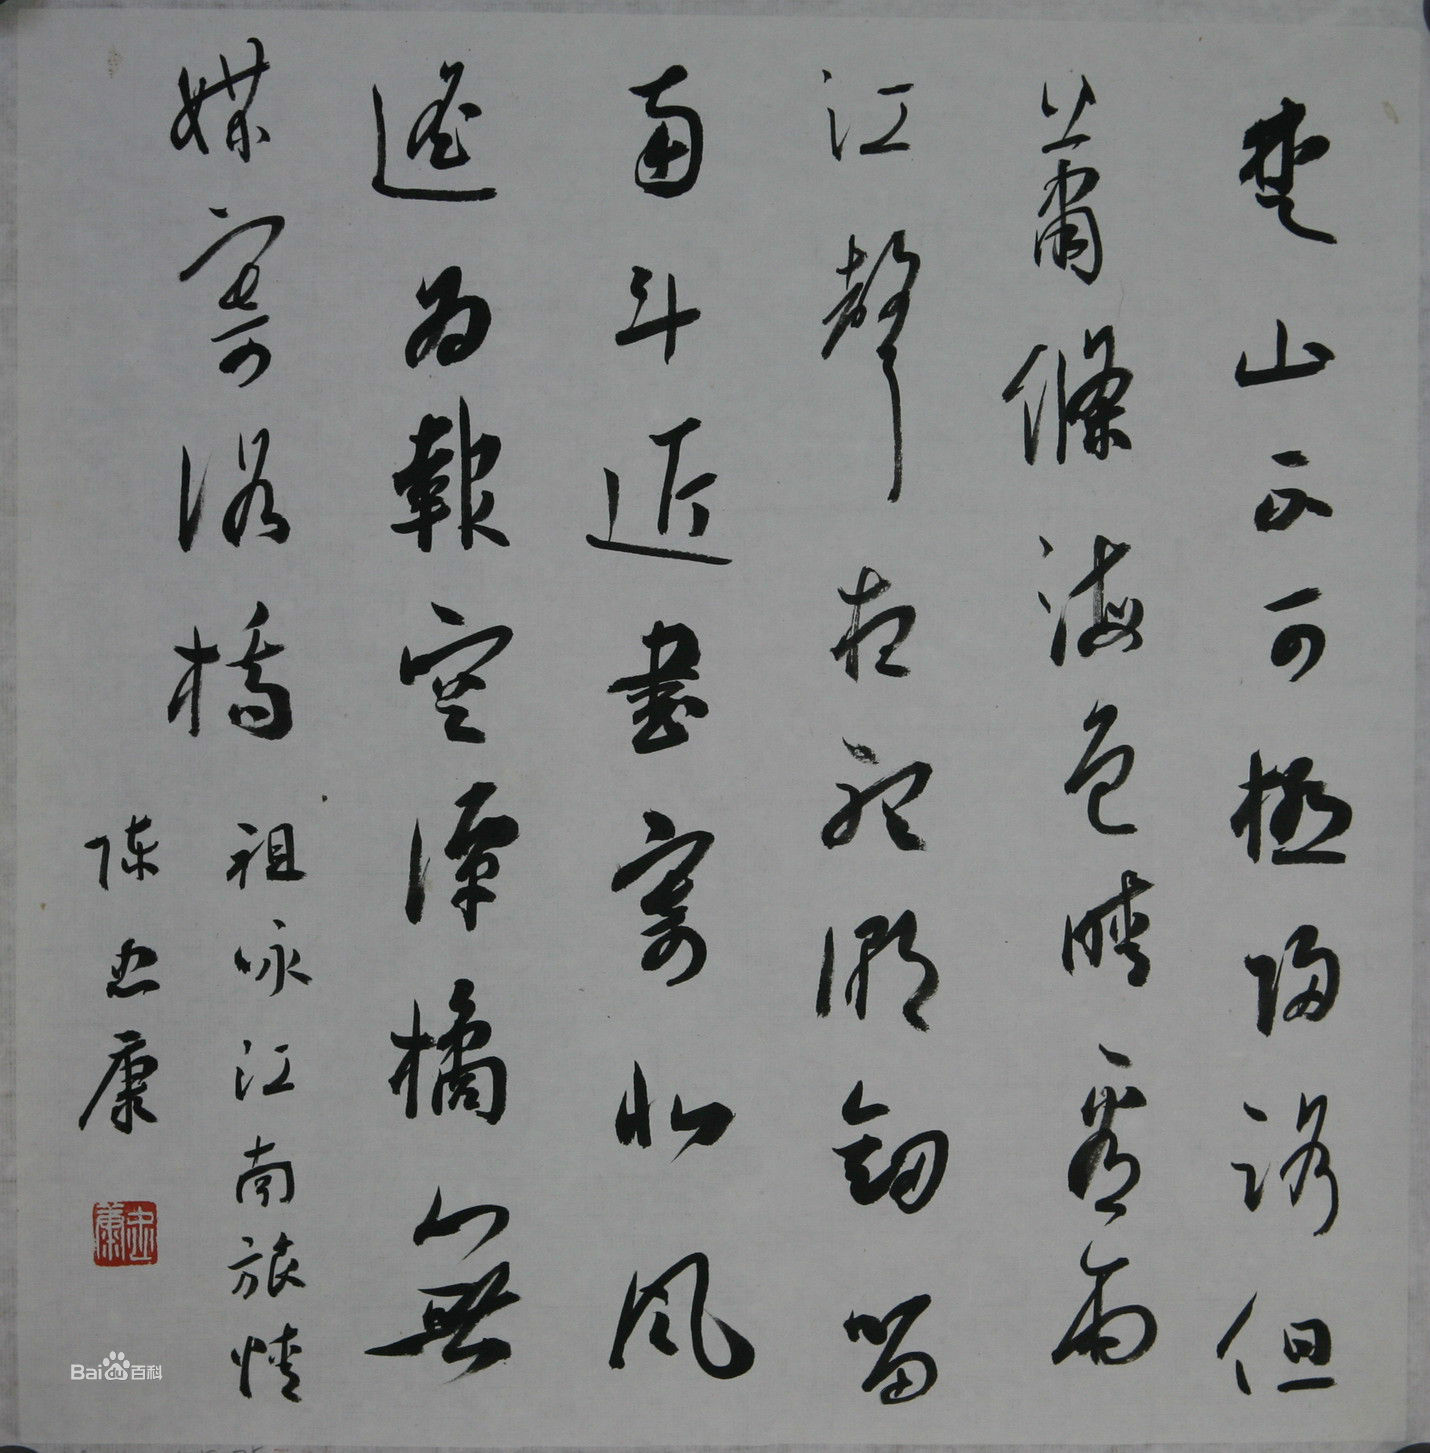 楚山不可極歸路但
蕭條海色晴看雨
江聲夜聽潮劍留
南斗近書寄北風
遙為報空潭橘無
媒寄洛橋
祖咏江南旅情
陳忠康
忠康
Bai du 百科